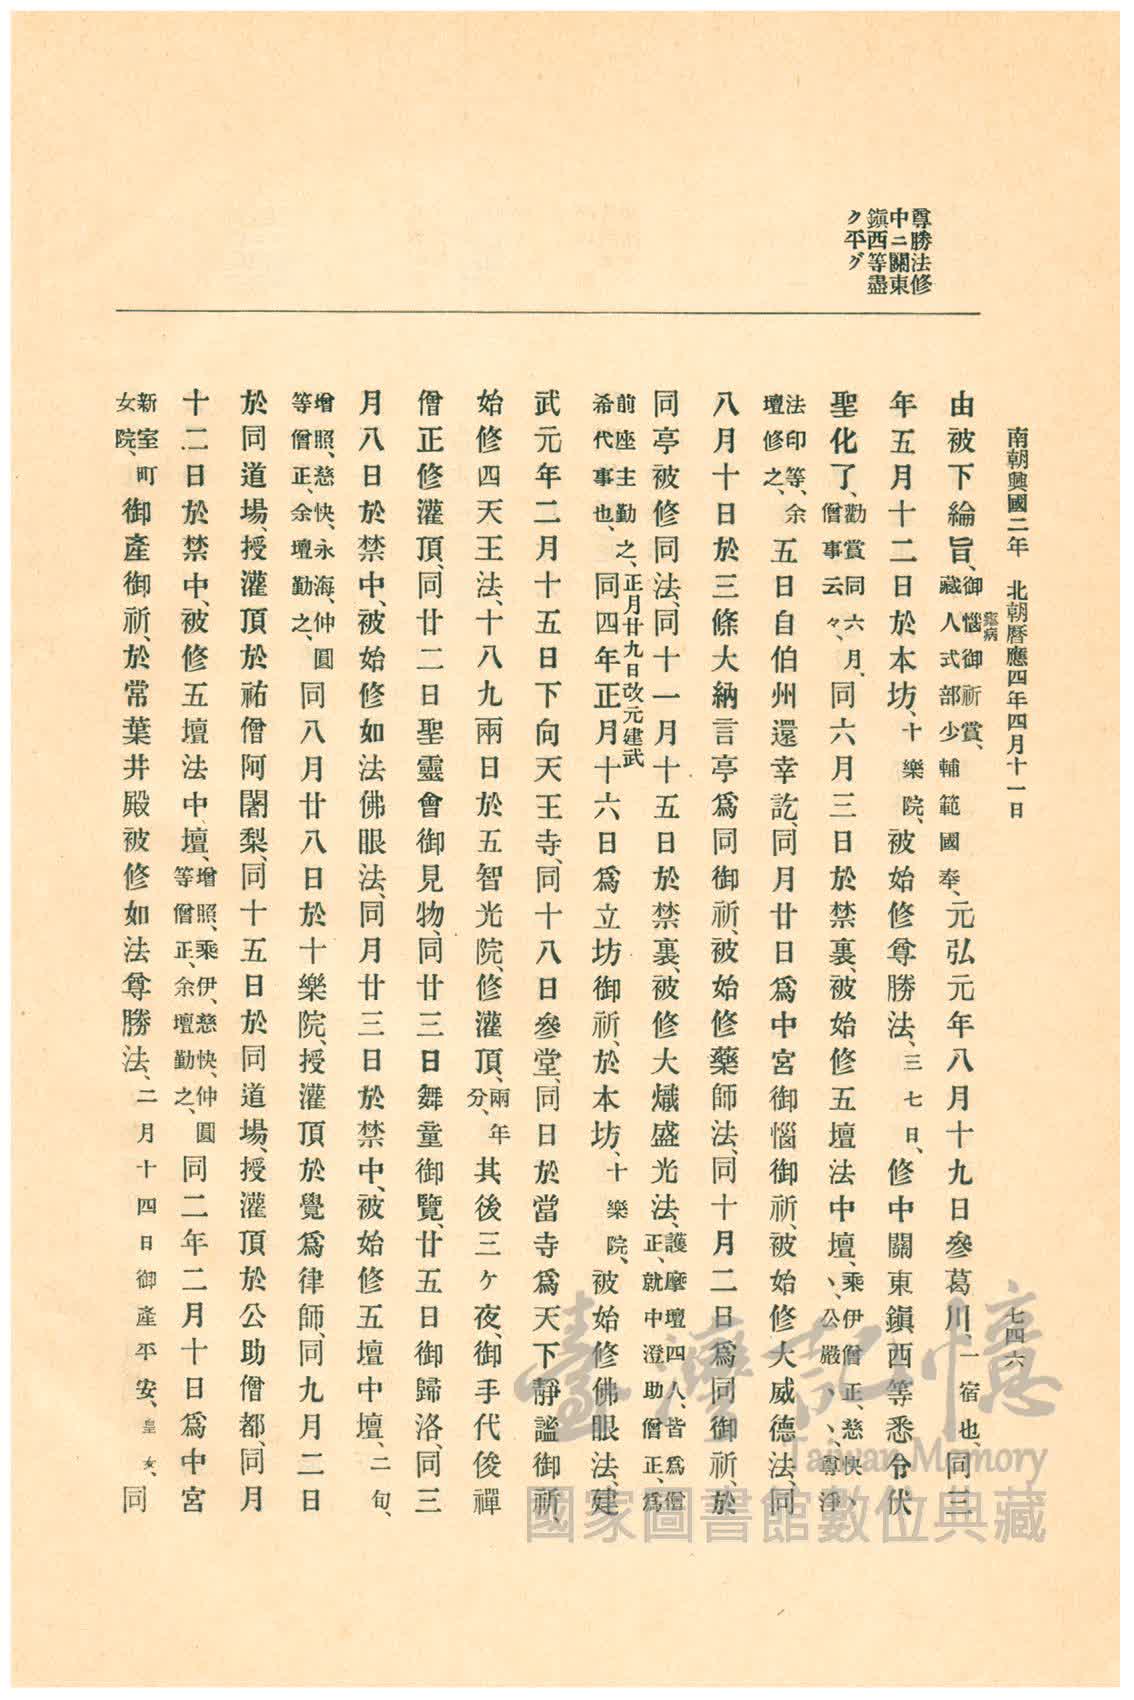 尊勝法修
中ニ關東
鎭西等盡
ク平グ
南朝興國二年　北朝曆應四年四月十一日　七四六
由被下綸旨、御惱御祈賞、瘧病藏人式部少輔範國奉、元弘元年八月十九日參葛川、一宿也、同三
年五月十二日於本坊、十樂院、被始修尊勝法、三七日、修中關東鎭西等悉令伏
聖化了、勸賞同六月、僧事云々、同六月三日於禁裏、被始修五壇法中壇、乘伊僧正、慈快、、公嚴、、尊淨
法印等、余壇修之、五日自伯州還幸訖、同月廿日爲中宮御惱御祈、被始修大威德法、同
八月十日於三條大納言亭爲同御祈、被始修藥師法、同十月二日爲同御祈、於
同亭被修同法、同十一月十五日於禁裏、被修大熾盛光法、護摩壇四人、皆爲僧正、就中澄助僧正、爲
前座主勤之、希代事也、正月廿九日改元建武同四年正月十六日爲立坊御祈、於本坊、十樂院、被始修佛眼法、建
武元年二月十五日下向天王寺、同十八日參堂、同日於當寺爲天下靜謐御祈、
始修四天王法、十八九兩日於五智光院、修灌頂、兩年分、其後三ケ夜、御手代俊禪
僧正修灌頂、同廿二日聖靈會御見物、同廿三日舞童御覽、廿五日御歸洛、同三
月八日於禁中、被始修如法佛眼法、同月廿三日於禁中、被始修五壇中壇、二旬、
增照、慈快、永海、仲圓等僧正、余壇勤之、同八月廿八日於十樂院、授灌頂於覺爲律師、同九月二日
於同道場、授灌頂於祐僧阿闍梨、同十五日於同道場、授灌頂於公助僧都、同月
十二日於禁中、被修五壇法中壇、增照、乘伊、慈快、仲圓等僧正、余壇勤之、同二年二月十日爲中宮
新室町女院、御產御祈、於常葉井殿被修如法尊勝法、二月十四日御產平安、皇女、同
臺灣記憶
Taiwan Memory
國家圖書館數位典藏